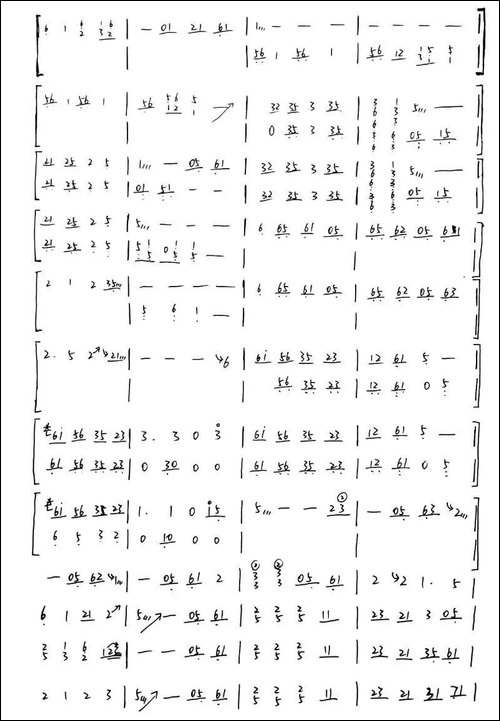 6 1 6/2 13/62 | — 01 21 61 | 1,,, — — — | — — — —
56 1 56 1 | 56 12 13/51 5/1
56 1 56 1 | 56 56/12 5/1 ↗ | 32 35 3 35 | 3/6/3 1/3 5,,, —
0 35 3 35 | 3/6 6/3 05 15
21 25 2 5 | 1,,, — 05 61 | 32 35 3 35 | 3/6/3 1/3 5,,, —
21 25 2 5 | 01 51 — — | 32 35 3 35 | 3/6 6/3 05 15
21 25 2 5 | 5,,, — — — | — — — —
21 25 2 5 | 5/5 1/5 0 1/5 1/5 — | 6 65 61 05 | 65 62 05 61
2 1 2 35,,, | — — — — | 6 65 61 05 | 65 62 05 63
5 6 1 —
2. 5 2↗ 21,,, | — — — 6 | 6i 56 35 23 | 12 61 5 —
56 35 23 | 12 61 0 5
6i 56 35 23 | 3. 3 0 3 | 6i 56 35 23 | 12 61 5 —
61 56 35 23 | 0 30 0 0 | 61 56 35 23 | 12 61 0 5
6i 56 35 23 | 1. 1 0 i5 | 5,,, — — 23 | — 05 63 2,,,
6 5 3 2 | 0 10 0 0
— 05 62 1,,, | — 05 61 2 | 3/3 3/3 05 61 | 2 2 1. 5
6 1 21 2↗ | 5,,, ↗ — 05 61 | 2/5 2/5 2/5 11 | 23 21 3 05
2/5 1/3 6/2 | — — 05 61 | 2/5 2/5 2/5 11 | 23 21 35 61
2 1 2 3 | 5,,, ↗ — 05 61 | 2/5 2/5 2/5 11 | 23 21 31 71